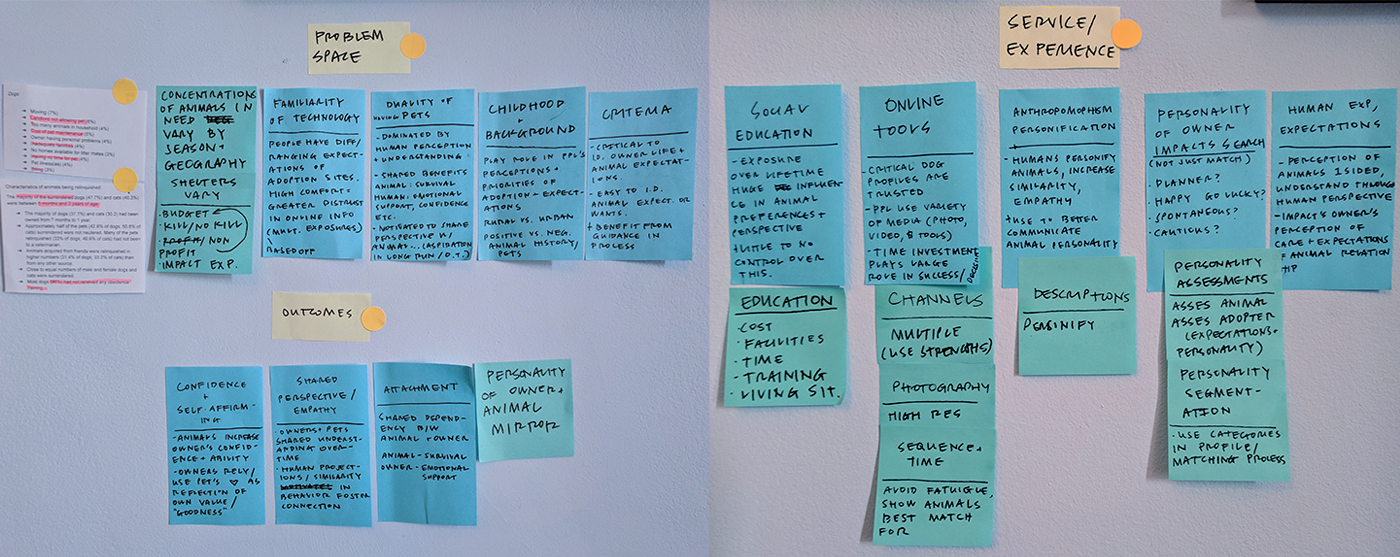 PROBLEM
SPACE
Dogs:
Moving (7%)
Landlord not allowing pet (6%)
Too many animals in household (4%)
Cost of pet maintenance (5%)
Owner having personal problems (4%)
Inadequate facilities (4%)
No homes available for litter mates (3%)
Having no time for pet (4%)
Pet illness(es) (4%)
Biting (3%)
Characteristics of animals being relinquished
The majority of the surrendered dogs (47.7%) and cats (40.3%)
were between 5 months and 3 years of age.
The majority of dogs (37.1%) and cats (30.2) had been
owned from 7 months to 1 year.
Approximately half of the pets (42.8% of dogs; 50.8% of
cats) surrendered were not neutered. Many of the pets
relinquished (33% of dogs; 46.9% of cats) had not been
to a veterinarian.
Animals acquired from friends were relinquished in
higher numbers (31.4% of dogs; 33.2% of cats) than
from any other source.
Close to equal numbers of male and female dogs and
cats were surrendered.
Most dogs (96%) had not received any obedience
training.
CONCENTRATIONS
OF ANIMALS IN
NEED
VARY BY
SEASON +
GEOGRAPHY
SHELTERS
VARY
- BUDGET
- KILL/NO KILL
- PROFIT/NON
PROFIT
IMPACT EXP.
FAMILIARITY
OF TECHNOLOGY
PEOPLE HAVE DIFF/
RANGING EXPECT-
ATIONS OF
ADOPTION SITES.
HIGH COMFORT =
GREATER DISTRUST
IN ONLINE INFO
(MULT. EXPOSURES)
BASED OFF
DUALITY OF
HAVING PETS
- DOMINATED BY
HUMAN PERCEPTION
+ UNDERSTANDING
- SHARED BENEFITS
ANIMAL: SURVIVAL
HUMAN: EMOTIONAL
SUPPORT, CONFIDENCE
ETC.
- MOTIVATED TO SHARE
PERSPECTIVE W/
ANIMAL... (ASPIRATION
IN LONG RUN / O.T.)
CHILDHOOD
+
BACKGROUND
PLAY ROLE IN PPL'S
PERCEPTIONS +
PRIORITIES OF
ADOPTION + EXPECT-
ATIONS
RURAL VS. URBAN.
POSITIVE VS. NEG.
ANIMAL HISTORY/
PETS
CRITERIA
- CRITICAL TO
I.D. OWNER LIFE +
ANIMAL EXPECTAT-
IONS.
- EASY TO I.D.
ANIMAL EXPECT. OR
WANTS.
+ BENEFIT FROM
GUIDANCE IN
PROCESS
OUTCOMES
CONFIDENCE
+
SELF-AFFIRM-
ING
- ANIMALS INCREASE
OWNER'S CONFID-
ENCE + ABILITY
- OWNERS RELY/
USE PET'S ♥ AS
REFLECTION OF
OWN VALUE/
"GOODNESS"
SHARED
PERSPECTIVE/
EMPATHY
- OWNERS + PETS
SHARED UNDERST-
ANDING OVER-
TIME
- HUMAN PROJECT-
IONS / SIMILARITY
IN
BEHAVIOR FOSTER
CONNECTION
ATTACHMENT
SHARED DEPEND-
ENCY B/W
ANIMAL + OWNER
ANIMAL - SURVIVAL
OWNER - EMOTIONAL
SUPPORT
PERSONALITY
OF OWNER +
ANIMAL
MIRROR
SERVICE/
EXPERIENCE
SOCIAL
EDUCATION
- EXPOSURE
OVER LIFETIME
HUGE INFLUEN-
CE IN ANIMAL
PREFERENCES +
PERSPECTIVE
+ LITTLE TO NO
CONTROL OVER
THIS.
EDUCATION
- COST
- FACILITIES
- TIME
- TRAINING
- LIVING SIT.
ONLINE
TOOLS
- CRITICAL DOG
PROFILES ARE
TRUSTED
- PPL USE VARIETY
OF MEDIA (PHOTO,
VIDEO, & TOOLS)
- TIME INVESTMENT
PLAYS LARGE
ROLE IN SUCCESS/
CHANNELS
MULTIPLE
(USE STRENGTHS)
PHOTOGRAPHY
HIGH RES
SEQUENCE +
TIME
AVOID FATUIGUE,
SHOW ANIMALS
BEST MATCH
FOR
ANTHROPOMOPHISM
PERSONIFICATION
- HUMANS PERSONIFY
ANIMALS, INCREASE
SIMILARITY,
EMPATHY
+ USE TO BETTER
COMMUNICATE
ANIMAL PERSONALITY
DESCRIPTIONS
PERSINIFY
PERSONALITY
OF OWNER
IMPACTS SEARCH
(NOT JUST MATCH)
- PLANNER?
- HAPPY GO LUCKY?
- SPONTANEOUS?
- CAUTIOUS?
PERSONALITY
ASSESSMENTS
ASSES ANIMAL
ASSES ADOPTER
(EXPECTATIONS +
PERSONALITY)
PERSONALITY
SEGMENT-
ATION
- USE CATEGORIES
IN PROFILE/
MATCHING PROCESS
HUMAN EXP,
EXPECTATIONS
- PERCEPTION OF
ANIMALS 1SIDED,
UNDERSTAND THROUGH
HUMAN PERSPECTIVE
- IMPACTS OWNER'S
PERCEPTION OF
CARE + EXPECTATIONS
OF ANIMAL RELATION
SHIP